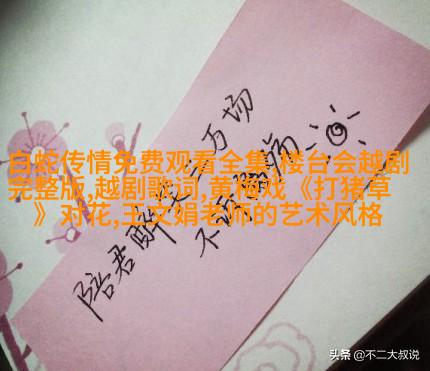 白蛇传情免费观看全集,楼台会越剧
完整版,越剧歌词,黄梅戏《打猪草
》对花,王文娟老师的艺术风格
陪君醉笑三万场
不诉
头条 @不二大叔说